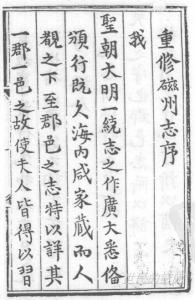 重修磁州志序
我
聖朝大明一統志之作廣大悉偹
頒行旣久海内咸家藏而人
覩之下至郡邑之志特以詳其
一郡一邑之故使夫人皆得以習